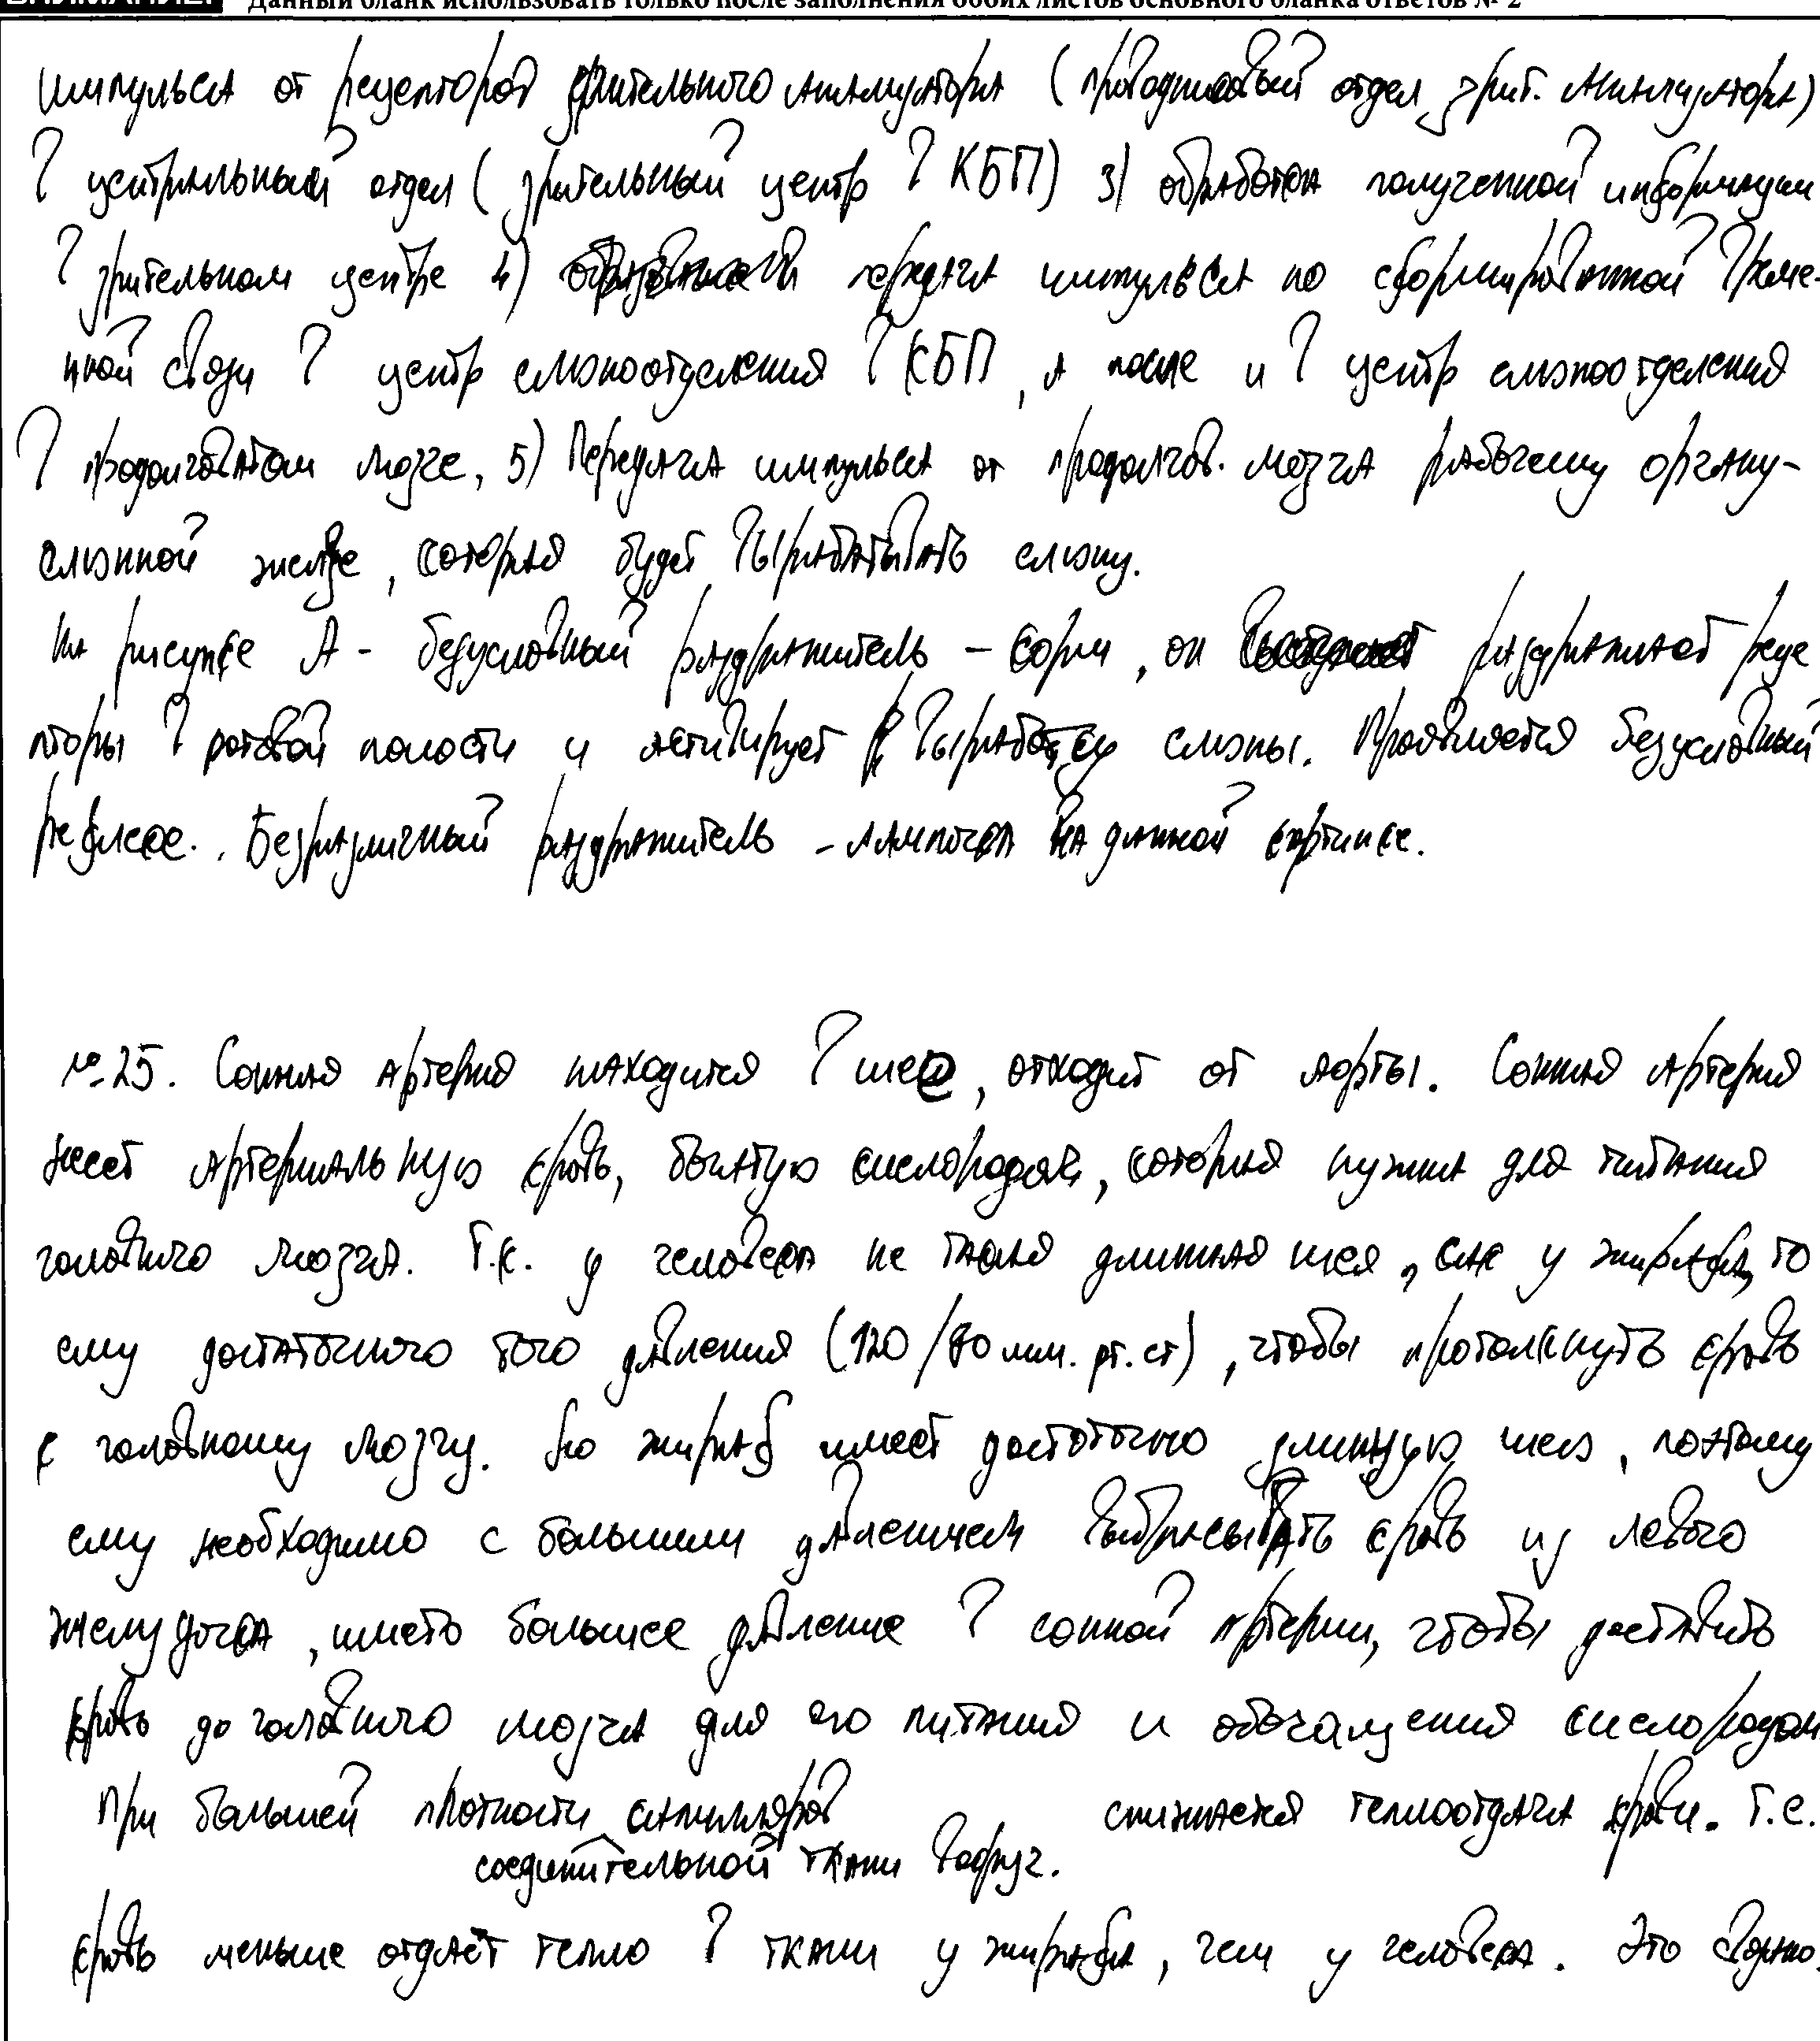 Данный бланк использовать только после заполнения обоих листов основного бланка ответов № 2
импульса от рецепторов зрительного анализатора (проводниковый отдел зрит. анализатора)
в центральный отдел (зрительный центр в КБП) 3) обработка полученной информации
в зрительном центре 4) передача импульса по сформированной време-
нной связи в центр слюноотделения в КБП, а после и в центр слюноотделения
в продолговатом мозге, 5) Передача импульса от продолгов. мозга рабочему органу-
слюнной железе, которая будет вырабатывать слюну.
На рисунке А - безусловный раздражитель - корм, он раздражает реце
пторы в ротовой полости и активирует выработку слюны. Проявляется безусловный
рефлекс. Безразличный раздражитель - лампочка на данной картинке.
№25. Сонная артерия находится в шее, отходит от аорты. Сонная артерия
несет артериальную кровь, богатую кислородом, которая нужна для питания
головного мозга. Т.к. у человека не такая длинная шея, как у жирафа, то
ему достаточного того давления (120/80 мм. рт. ст), чтобы протолкнуть кровь
к головному мозгу. Но жираф имеет достаточно длинную шею, поэтому
ему необходимо с большим давлением выбрасывать кровь из левого
желудочка, иметь большее давление в сонной артерии, чтобы доставить
кровь до головного мозга для его питания и обогащения кислородом.
При большей плотности капилляров снижается теплоотдача крови. Т.е.
соединительной ткани вокруг.
кровь меньше отдаёт тепло в ткани у жирафа, чем у человека. Это связано